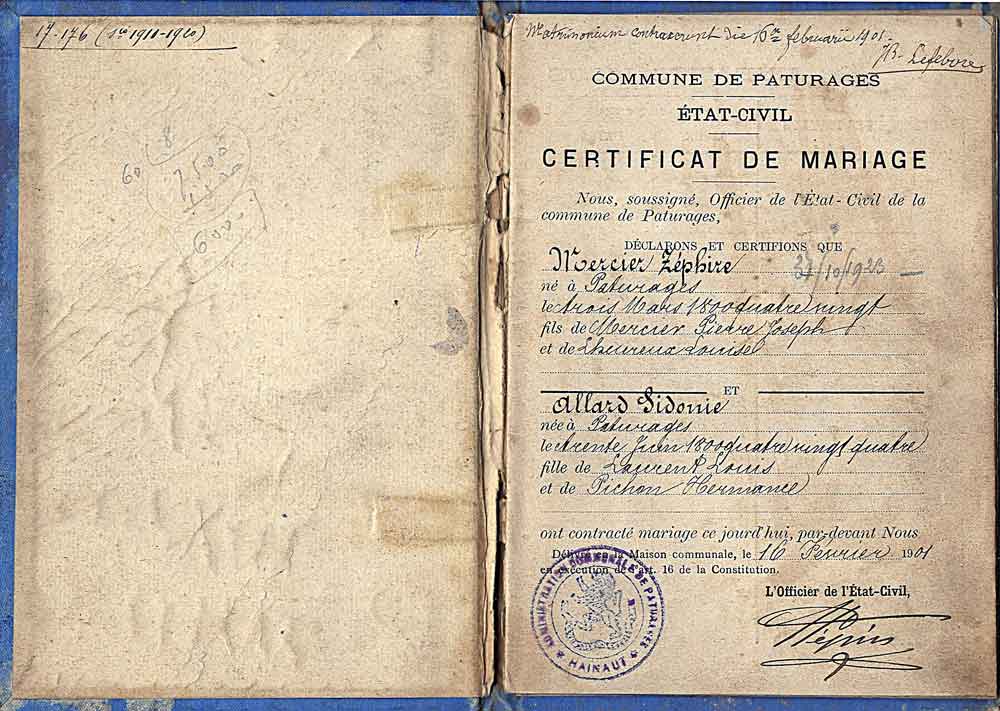 17-176 (1 1911-1920)
60 8
600
Matrimonium contraxerunt die 16 februarii 1901.
JB. Lefebvre
COMMUNE DE PATURAGES
ÉTAT-CIVIL
CERTIFICAT DE MARIAGE
Nous, soussigné, Officier de l'État-Civil de la
commune de Paturages,
DÉCLARONS ET CERTIFIONS QUE
Mercier Zéphire 27/10/1923
né à Paturages
le trois Mars 1800 quatre vingt
fils de Mercier Pierre Joseph
et de Lheureux Louise
ET
Allard Sidonie
née à Paturages
le trente Juin 1800 quatre vingt quatre
fille de Laurent Louis
et de Pichon Hermance
ont contracté mariage ce jourd'hui, par-devant Nous
Délivré en la Maison communale, le 16 Fevrier 1901
en exécution de l'art. 16 de la Constitution.
L'Officier de l'État-Civil,
ADMINISTRATION COMMUNALE DE PATURAGES
* HAINAUT *